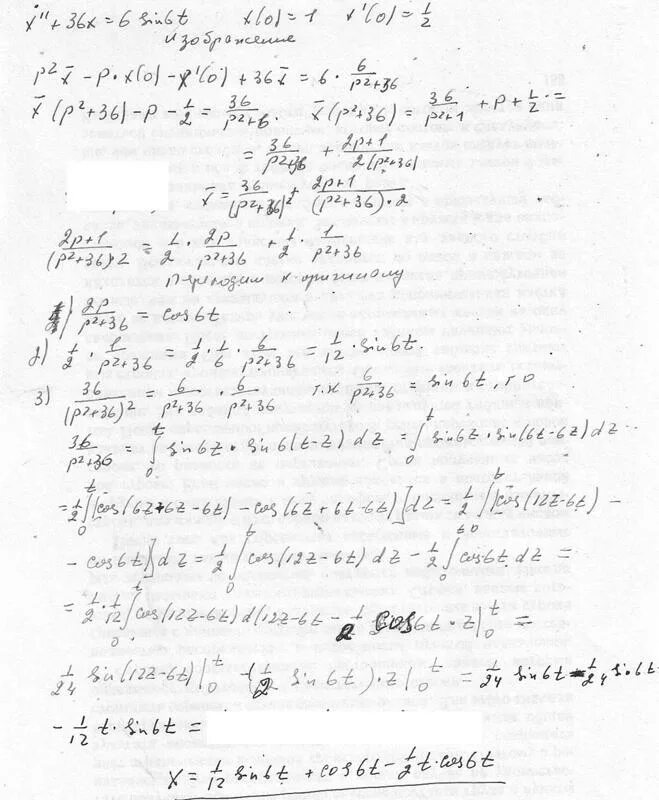 x'' + 36x = 6 sin6t x(0) = 1 x'(0) = 1/2
изображение
p² x̄ - p·x(0) - x'(0) + 36x̄ = 6 · 6/(p²+36)
x̄ (p²+36) - p - 1/2 = 36/(p²+6). x̄(p²+36) = 36/(p²+1) + p + 1/2 =
= 36/(p²+36) + (2p+1)/(2(p²+36)
x̄ = 36/(p²+36)² + (2p+1)/((p²+36)·2)
(2p+1)/((p²+36)2) = 1/2 · 2p/(p²+36) + 1/2 · 1/(p²+36)
Переходим к оригиналу
1) 2p/(p²+36) = cos6t
2) 1/2 · 1/(p²+36) = 1/2 · 1/6 · 6/(p²+36) = 1/12 · sin6t.
3) 36/(p²+36)² = 6/(p²+36) · 6/(p²+36) т.к 6/(p²+36) = sin6t, то
36/(p²+36) ∫₀ᵗ sin6z · sin6(t-z) dz = ∫₀ᵗ sin6z · sin(6t-6z) dz
= 1/2 ∫₀ᵗ [cos(6z+6z-6t) - cos(6z+6t-6t)] dz = 1/2 ∫₀ᵗ [cos(12z-6t) -
- cos6t] dz = 1/2 ∫₀ᵗ cos(12z-6t) dz - 1/2 ∫₀ᵗ cos6t dz =
= 1/2 · 1/12 ∫₀ᵗ cos(12z-6t) d(12z-6t - 1/2 cos6t · z|₀ᵗ =
1/24 sin(12z-6t)|₀ᵗ - (1/2 sin6t) · z|₀ᵗ = 1/24 sin6t - 1/24 sin6t
- 1/12 t · sin6t =
x = 1/12 sin6t + cos6t - 1/2 t·cos6t